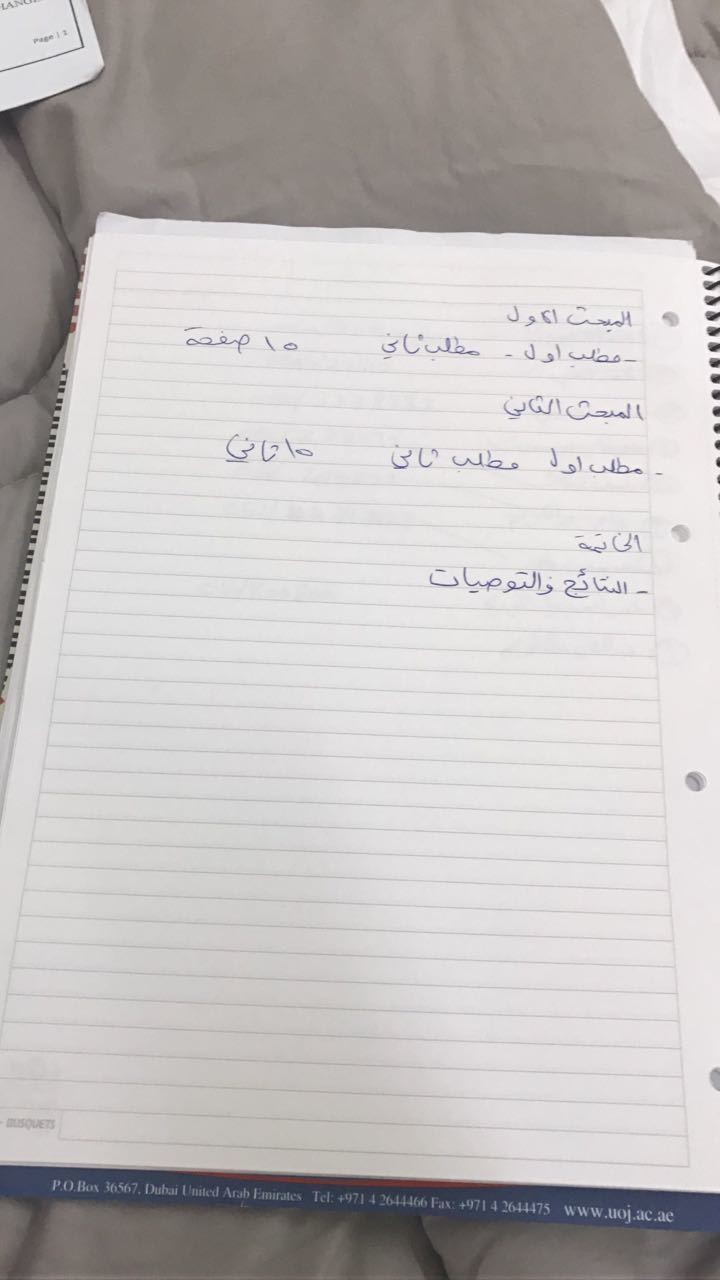 HANGE
Page | 2
المبحث الاول
- مطلب اول - مطلب ثاني ١٥ صفحة
المبحث الثاني
- مطلب اول مطلب ثاني ١٥ ثاني
الخاتمة
- النتائج والتوصيات
BUSQUETS
P.O.Box 36567, Dubai United Arab Emirates Tel: +971 4 2644466 Fax: +971 4 2644475 www.uoj.ac.ae